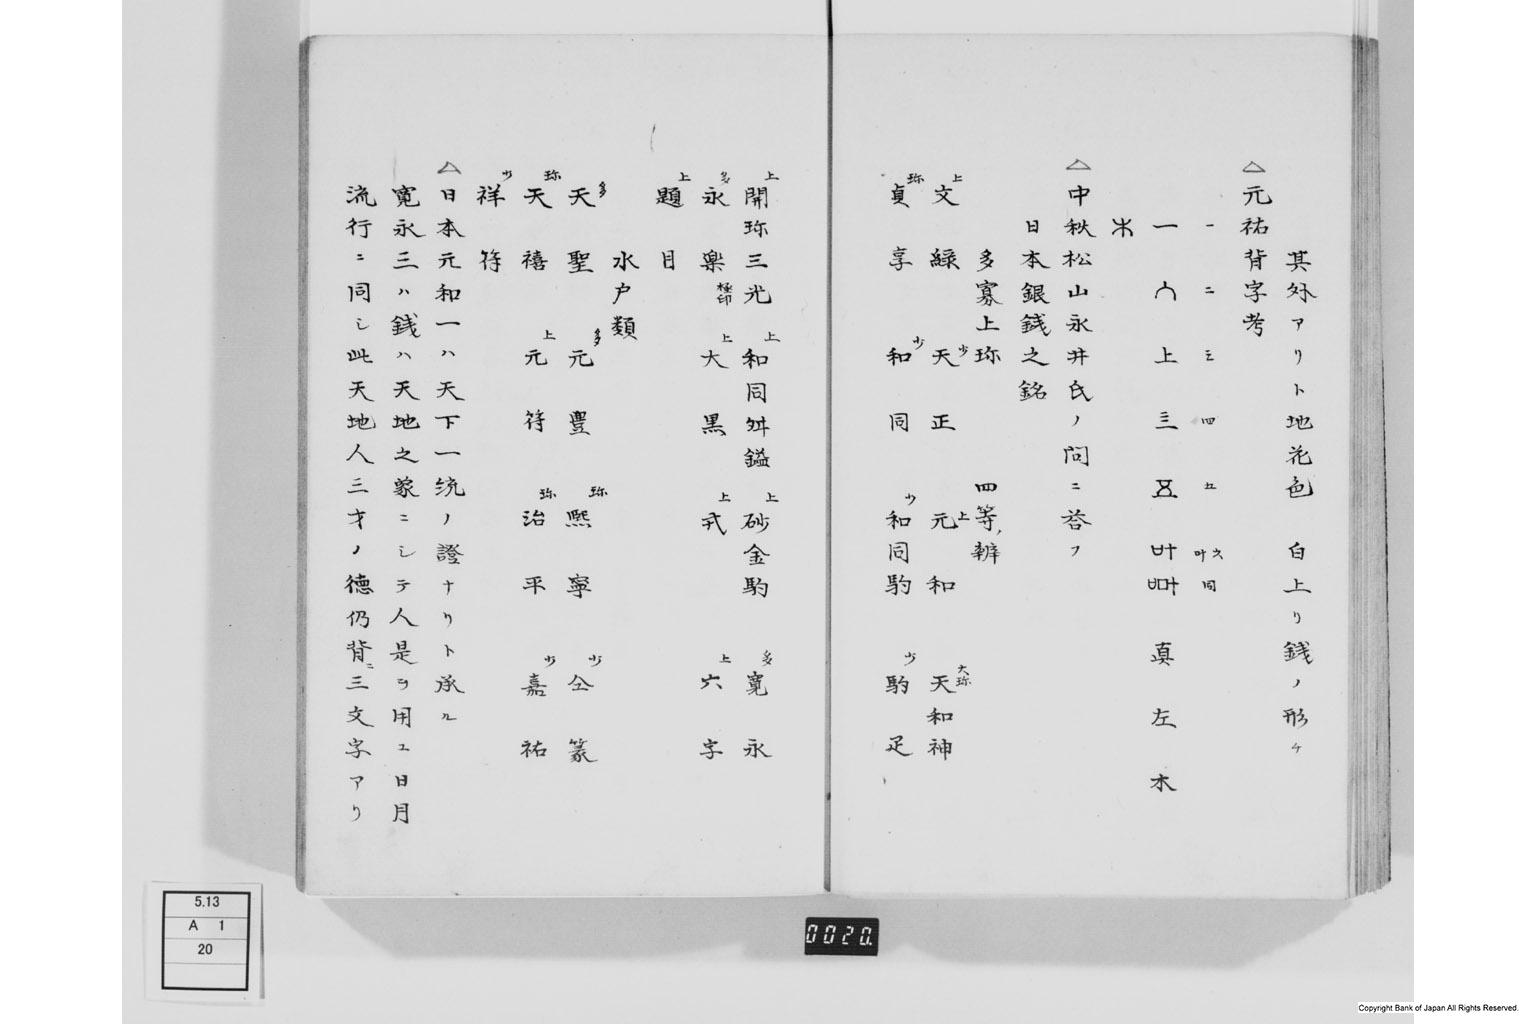 其外アリト地花色　白上リ銭ノ形ケ
△元祐背字考
一　二　三　四　五　六叶　同
一　上　三　五　叶　真　左　木
△中秋松山永井氏ノ問ニ答フ
日本銀銭之銘
多寡上珎　四等ノ辨
上文　緑　少天　正　上元　和　大珎天和神
珎貞　享　少和　同　少和同駒　少駒　足
上開珎三光　上和同舛鎰　上砂金駒　多寛　永
多永　楽極印　上大　黒　上戎　上六　字
上題　目
水戸類
多天　聖　多元　豊　珎熙　寧　少仝　篆
珎天　禧　上元　符　珎治　平　少嘉　祐
少祥　符
△日本元和一ハ天下一統ノ證ナリト承ル
寛永三ハ銭ハ天地之象ニシテ人是ヲ用ユ日月
流行ニ同シ此天地人三才ノ德仍背ニ三文字アリ
5.13
A 1
20
0020.
Copyright Bank of Japan All Rights Reserved.